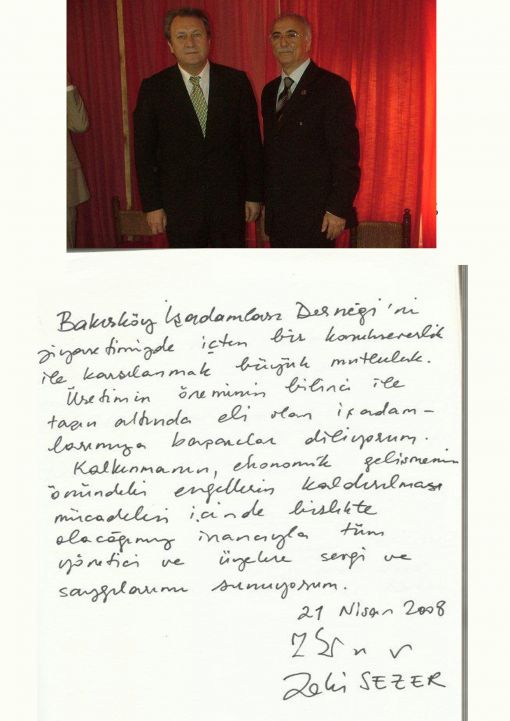 Bakırköy İşadamları Derneği'ni
ziyaretimizde içten bir konukseverlik
ile karşılanmak büyük mutluluk.
Üretimin öneminin bilinci ile
taşın altında eli olan işadam-
larımıza başarılar diliyorum.
Kalkınmanın, ekonomik gelişmenin
önündeki engellerin kaldırılması
mücadelesi içinde birlikte
olacağımız inancıyla tüm
yönetici ve üyelere sevgi ve
saygılarımı sunuyorum.
21 Nisan 2008
Zeki SEZER